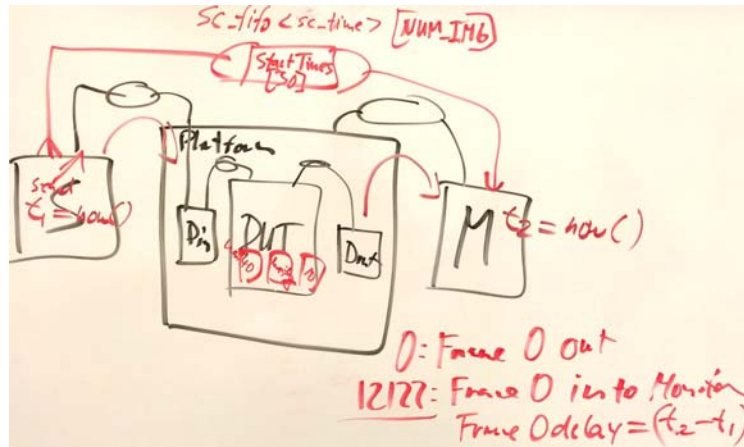 SC_fifo <sc_time> [NUM_IMG]
StartTimes
[30]
Platform
send
S
t1 = now()
Din
DUT
Dout
M
t2 = now()
0: Frame 0 out
12122: Frame 0 into Monitor
Frame 0 delay = (t2-t1)